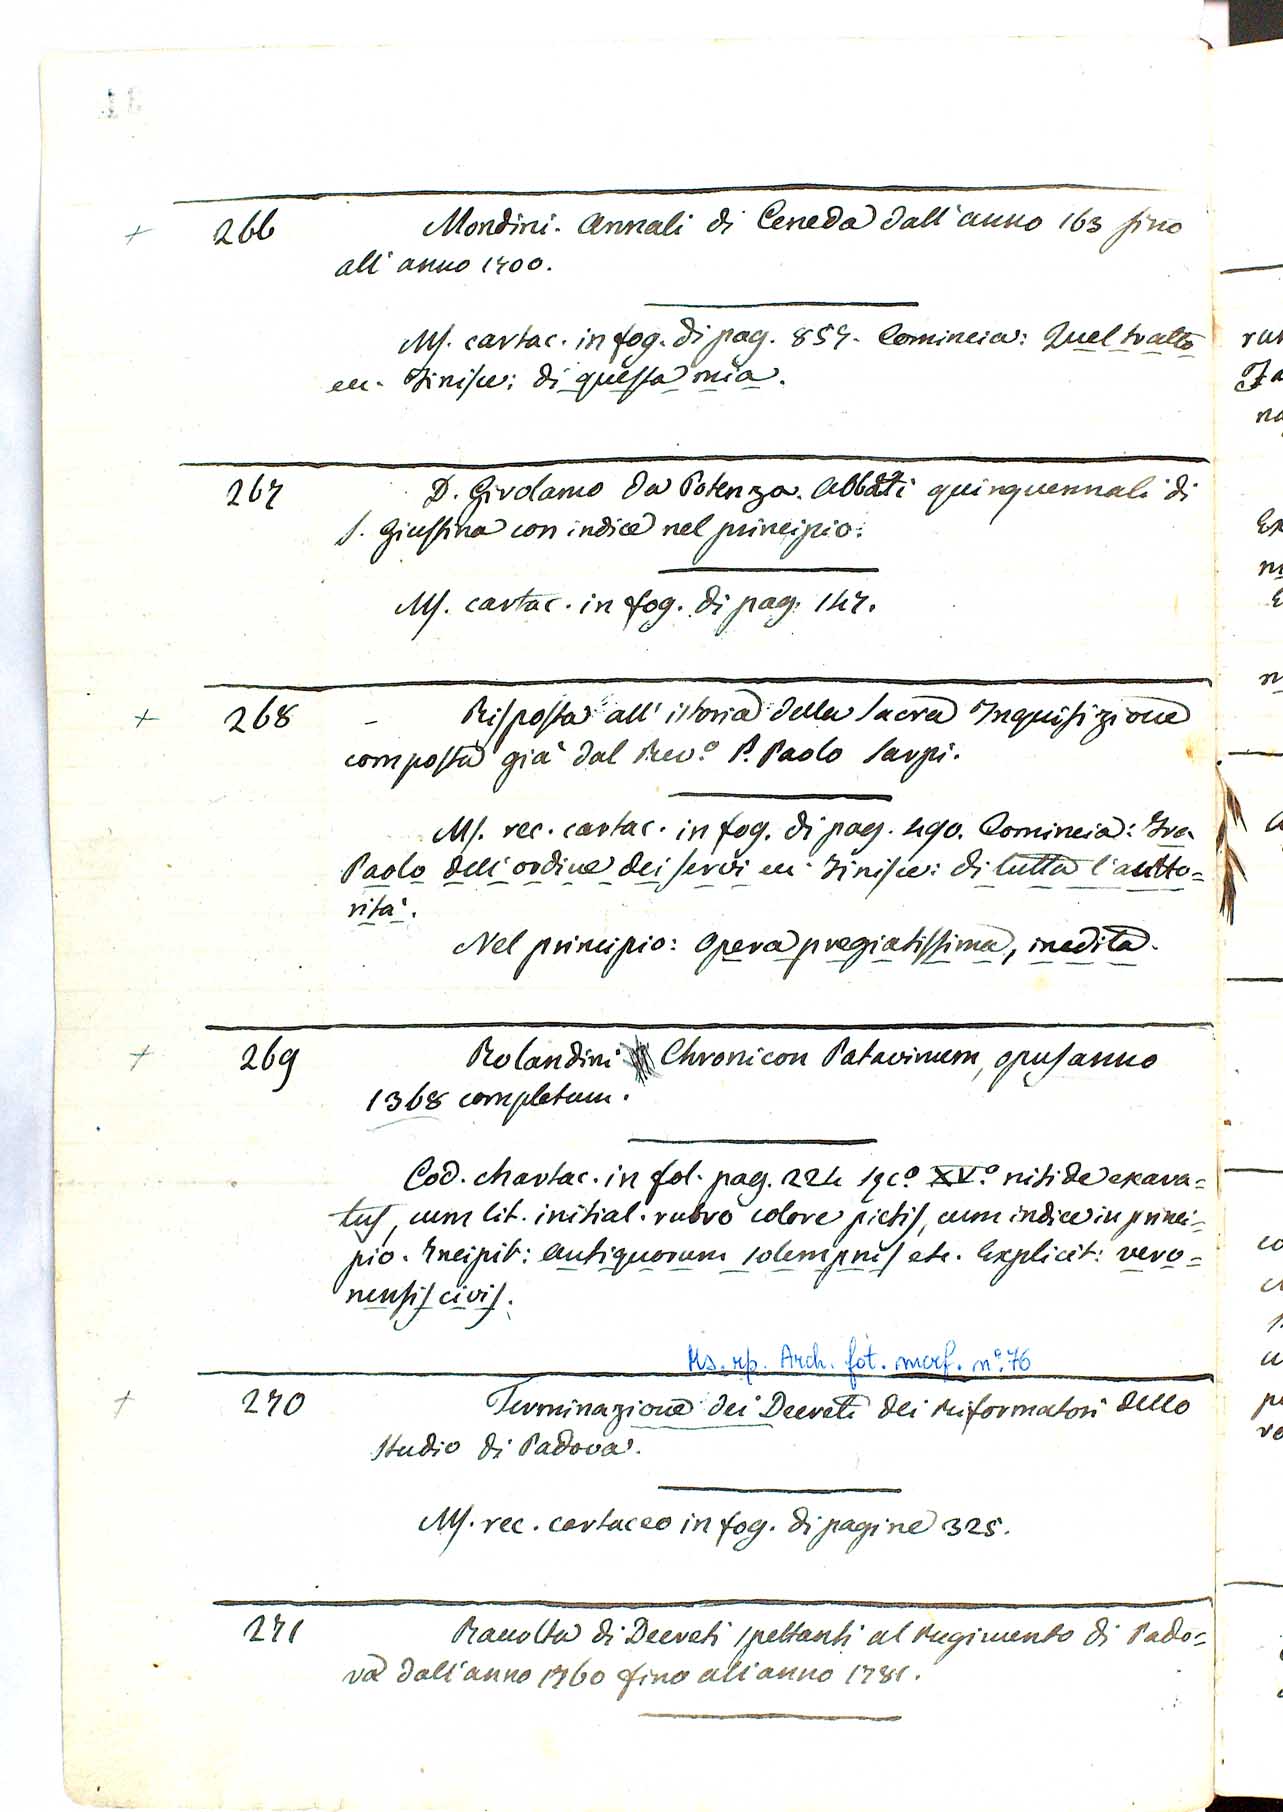 + 266 Mondini. Annali di Ceneda dall'anno 163 fino
all'anno 1700.
Ms. cartac. in fog. di pag. 857. Comincia: Quel tratto
ec. Finisce: di questa mia.
267 D. Girolamo da Potenza. Abbati quinquennali di
S. Giustina con indice nel principio.
Ms. cartac. in fog. di pag. 147.
+ 268 - Risposta all'istoria della Sacra Inquisizione
composta già dal Rev.o P. Paolo Sarpi.
Ms. rec. cartac. in fog. di pag. 490. Comincia: Fra
Paolo dell'ordine dei servi ec. Finisce: di tutta l'autto=
rità.
Nel principio: Opera pregiatissima, inedita.
+ 269 Rolandini Chronicon Patavinum, opus anno
1368 completum.
Cod. chartac. in fol. pag. 224 sec.o XV.o nitide exara=
tus, cum lit. initial. rubro colore pictis, cum indice in princi=
pio. Incipit: Antiquorum solempnis etc. Explicit: vero=
nensis civis.
Ms. rip. Arch. fot. morf. n.o 76
+ 270 Terminazione dei Decreti dei Riformatori dello
studio di Padova.
Ms. rec. cartaceo in fog. di pagine 325.
271 Raccolta di Decreti spettanti al Regimento di Pado=
va dall'anno 1760 fino all'anno 1781.